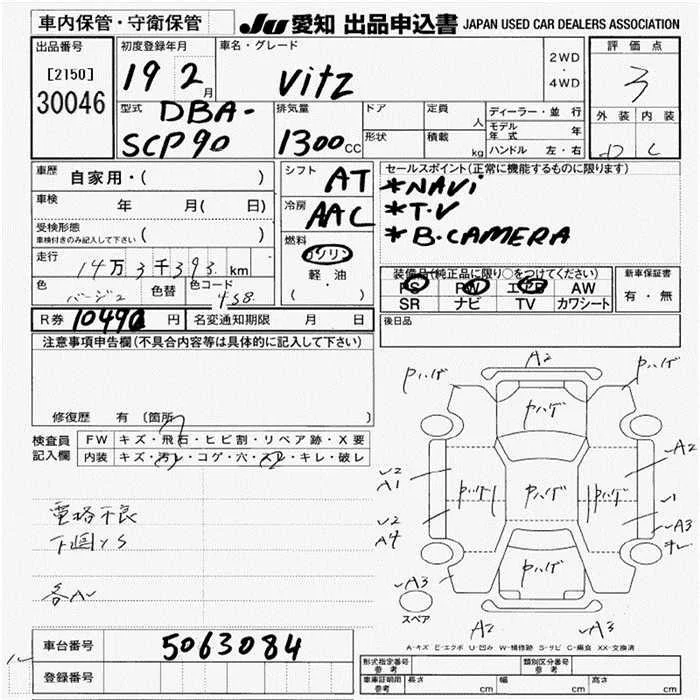 車内保管・守衛保管
JU 愛知 出品申込書 JAPAN USED CAR DEALERS ASSOCIATION
出品番号
[2150]
30046
初度登録年月
19 2 月
車名・グレード
Vitz
2WD
・
4WD
評価点
3
外装 内装
C
型式
DBA-
SCP90
排気量
1300 CC
ドア
定員
人
形状
積載
kg
ディーラー・並行
モデル年式 年
ハンドル 左・右
車歴
自家用・( )
車検
年 月( 日)
受検形態
車検付きのみ記入して下さい ( )
走行
14万3千393 km
色
色替
色コード
4S8
シフト
AT
冷房
AAC
燃料
ガソリン
軽油
( ・ )
セールスポイント(正常に機能するものに限ります)
*NAVi
*T・V
*B・CAMERA
装備品(純正品に限り○をつけてください)
PS PW エアB AW
SR ナビ TV カワシート
新車保証書
有・無
R券 10490 円
名変通知期限 月 日
後日品
注意事項申告欄(不具合内容等は具体的に記入して下さい)
修復歴 有 (箇所 )
検査員
記入欄
FW キズ・飛石・ヒビ割・リペア跡・X要
内装 キズ・汚レ・コゲ・穴・スレ・キレ・破レ
電格不良
下廻りS
各A
車台番号 5063084
登録番号
A2
Pハゲ
Pハゲ
Pハゲ
U2
A1
Pハゲ
Pハゲ
Pハゲ
A2
U2
A4
U1
A3
キレ
Pハゲ
A3
スペア
A2
A3
A-キズ E-エクボ U-凹み W-補修跡 S-サビ C-腐食 XX-交換済
形式指定番号
参考
類別区分番号
参考
車庫証明用
参考
長さ cm
幅 cm
高さ cm